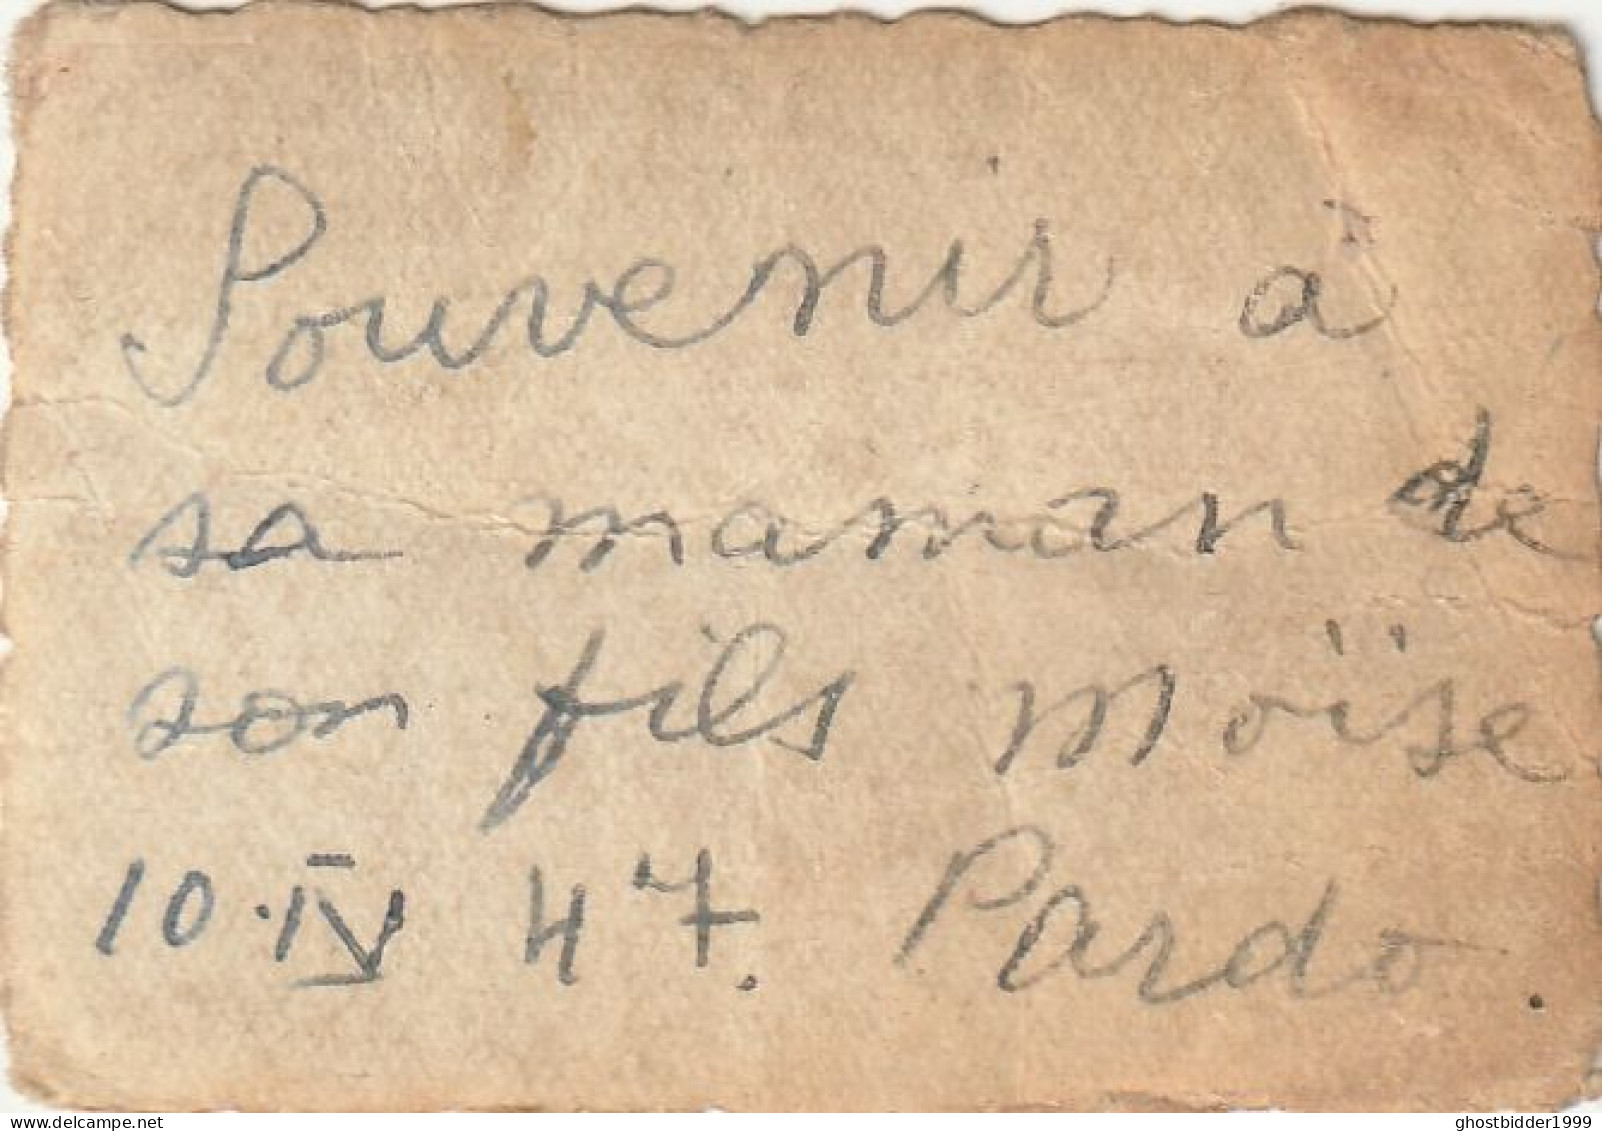 Souvenir à
sa maman de
son fils Moïse
10.IV 47. Pardo.
ghostbidder1999